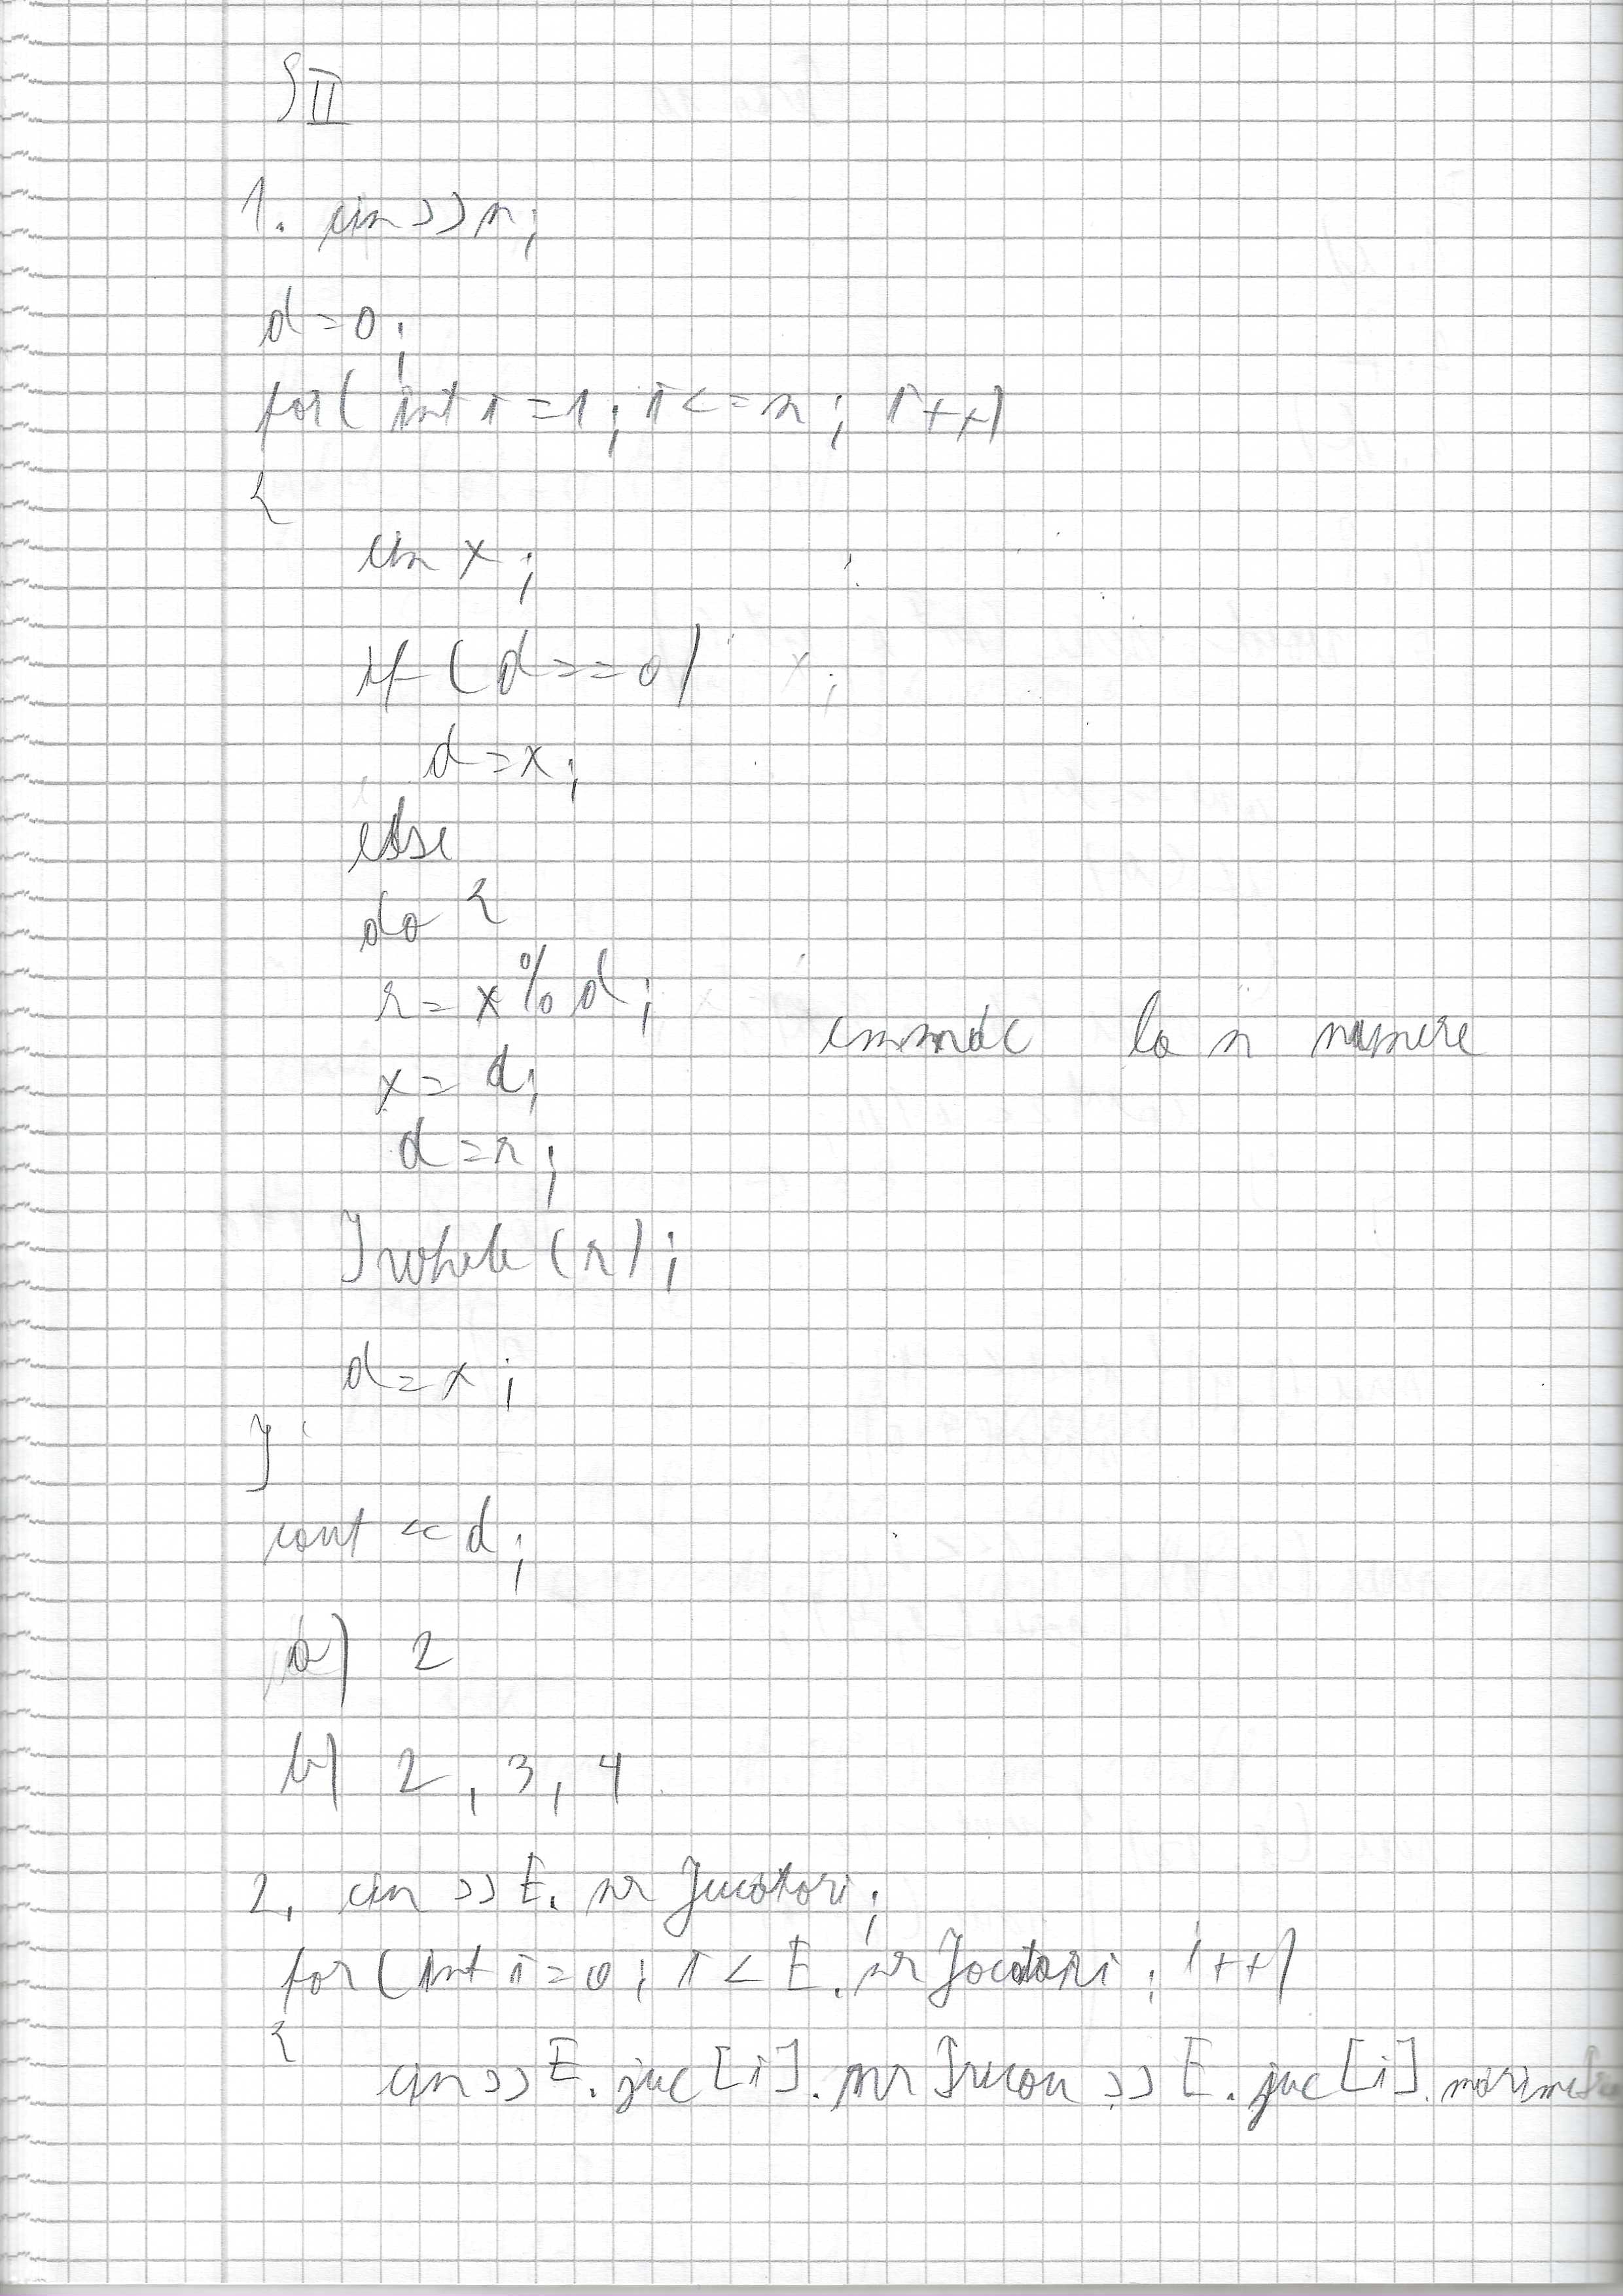 SII
1. cin>>n;
d=0;
for(int i=1; i<=n; i++)
{
cin x;
if (d==0)
d=x;
else
do {
r=x%d;
x=d;
d=r;
cmmdc la n numere
}while(r);
d=x;
}
cout <<d;
a) 2
b) 2, 3, 4
2. cin >>E.nrJucatori;
for(int i=0; i<E.nrJocatori; i++)
{
cin>>E.juc[i].nrTricou >> E.juc[i].